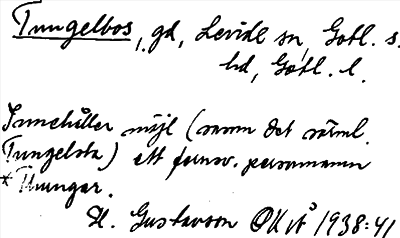 Tungelbos, gd, Levide sn, Gotl. s.
hd, Gotl. l.
Innehåller möjl (som det sörml.
Tungelsta) ett fornsv. personnamn
*Thungar.
H. Gustavson OKvÅ 1938:41